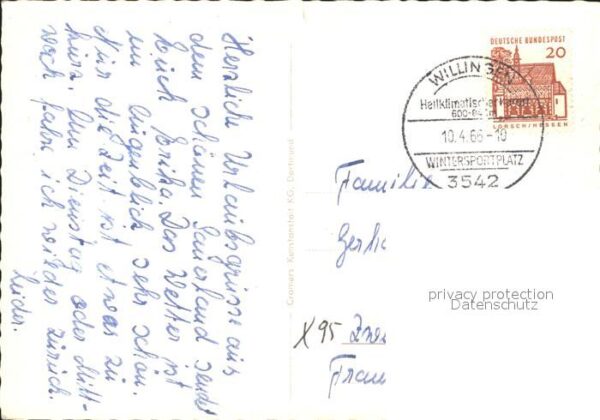 Herzliche Urlaubsgrüsse aus
dem schönen Sauerland sendet
Euch Erika. Das Wetter ist
im Augenblick sehr schön.
Nur die Zeit ist etwas zu
kurz. Am Dienstag oder Mitt-
woch fahre ich wieder zurück.
Leider.
Cramers Kunstanstalt KG, Dortmund
DEUTSCHE BUNDESPOST
20
LORSCH/HESSEN
WILLINGEN
Heilklimatischer Kurort
10.4.66-10
WINTERSPORTPLATZ
3542
Familie
privacy protection
Datenschutz
X95